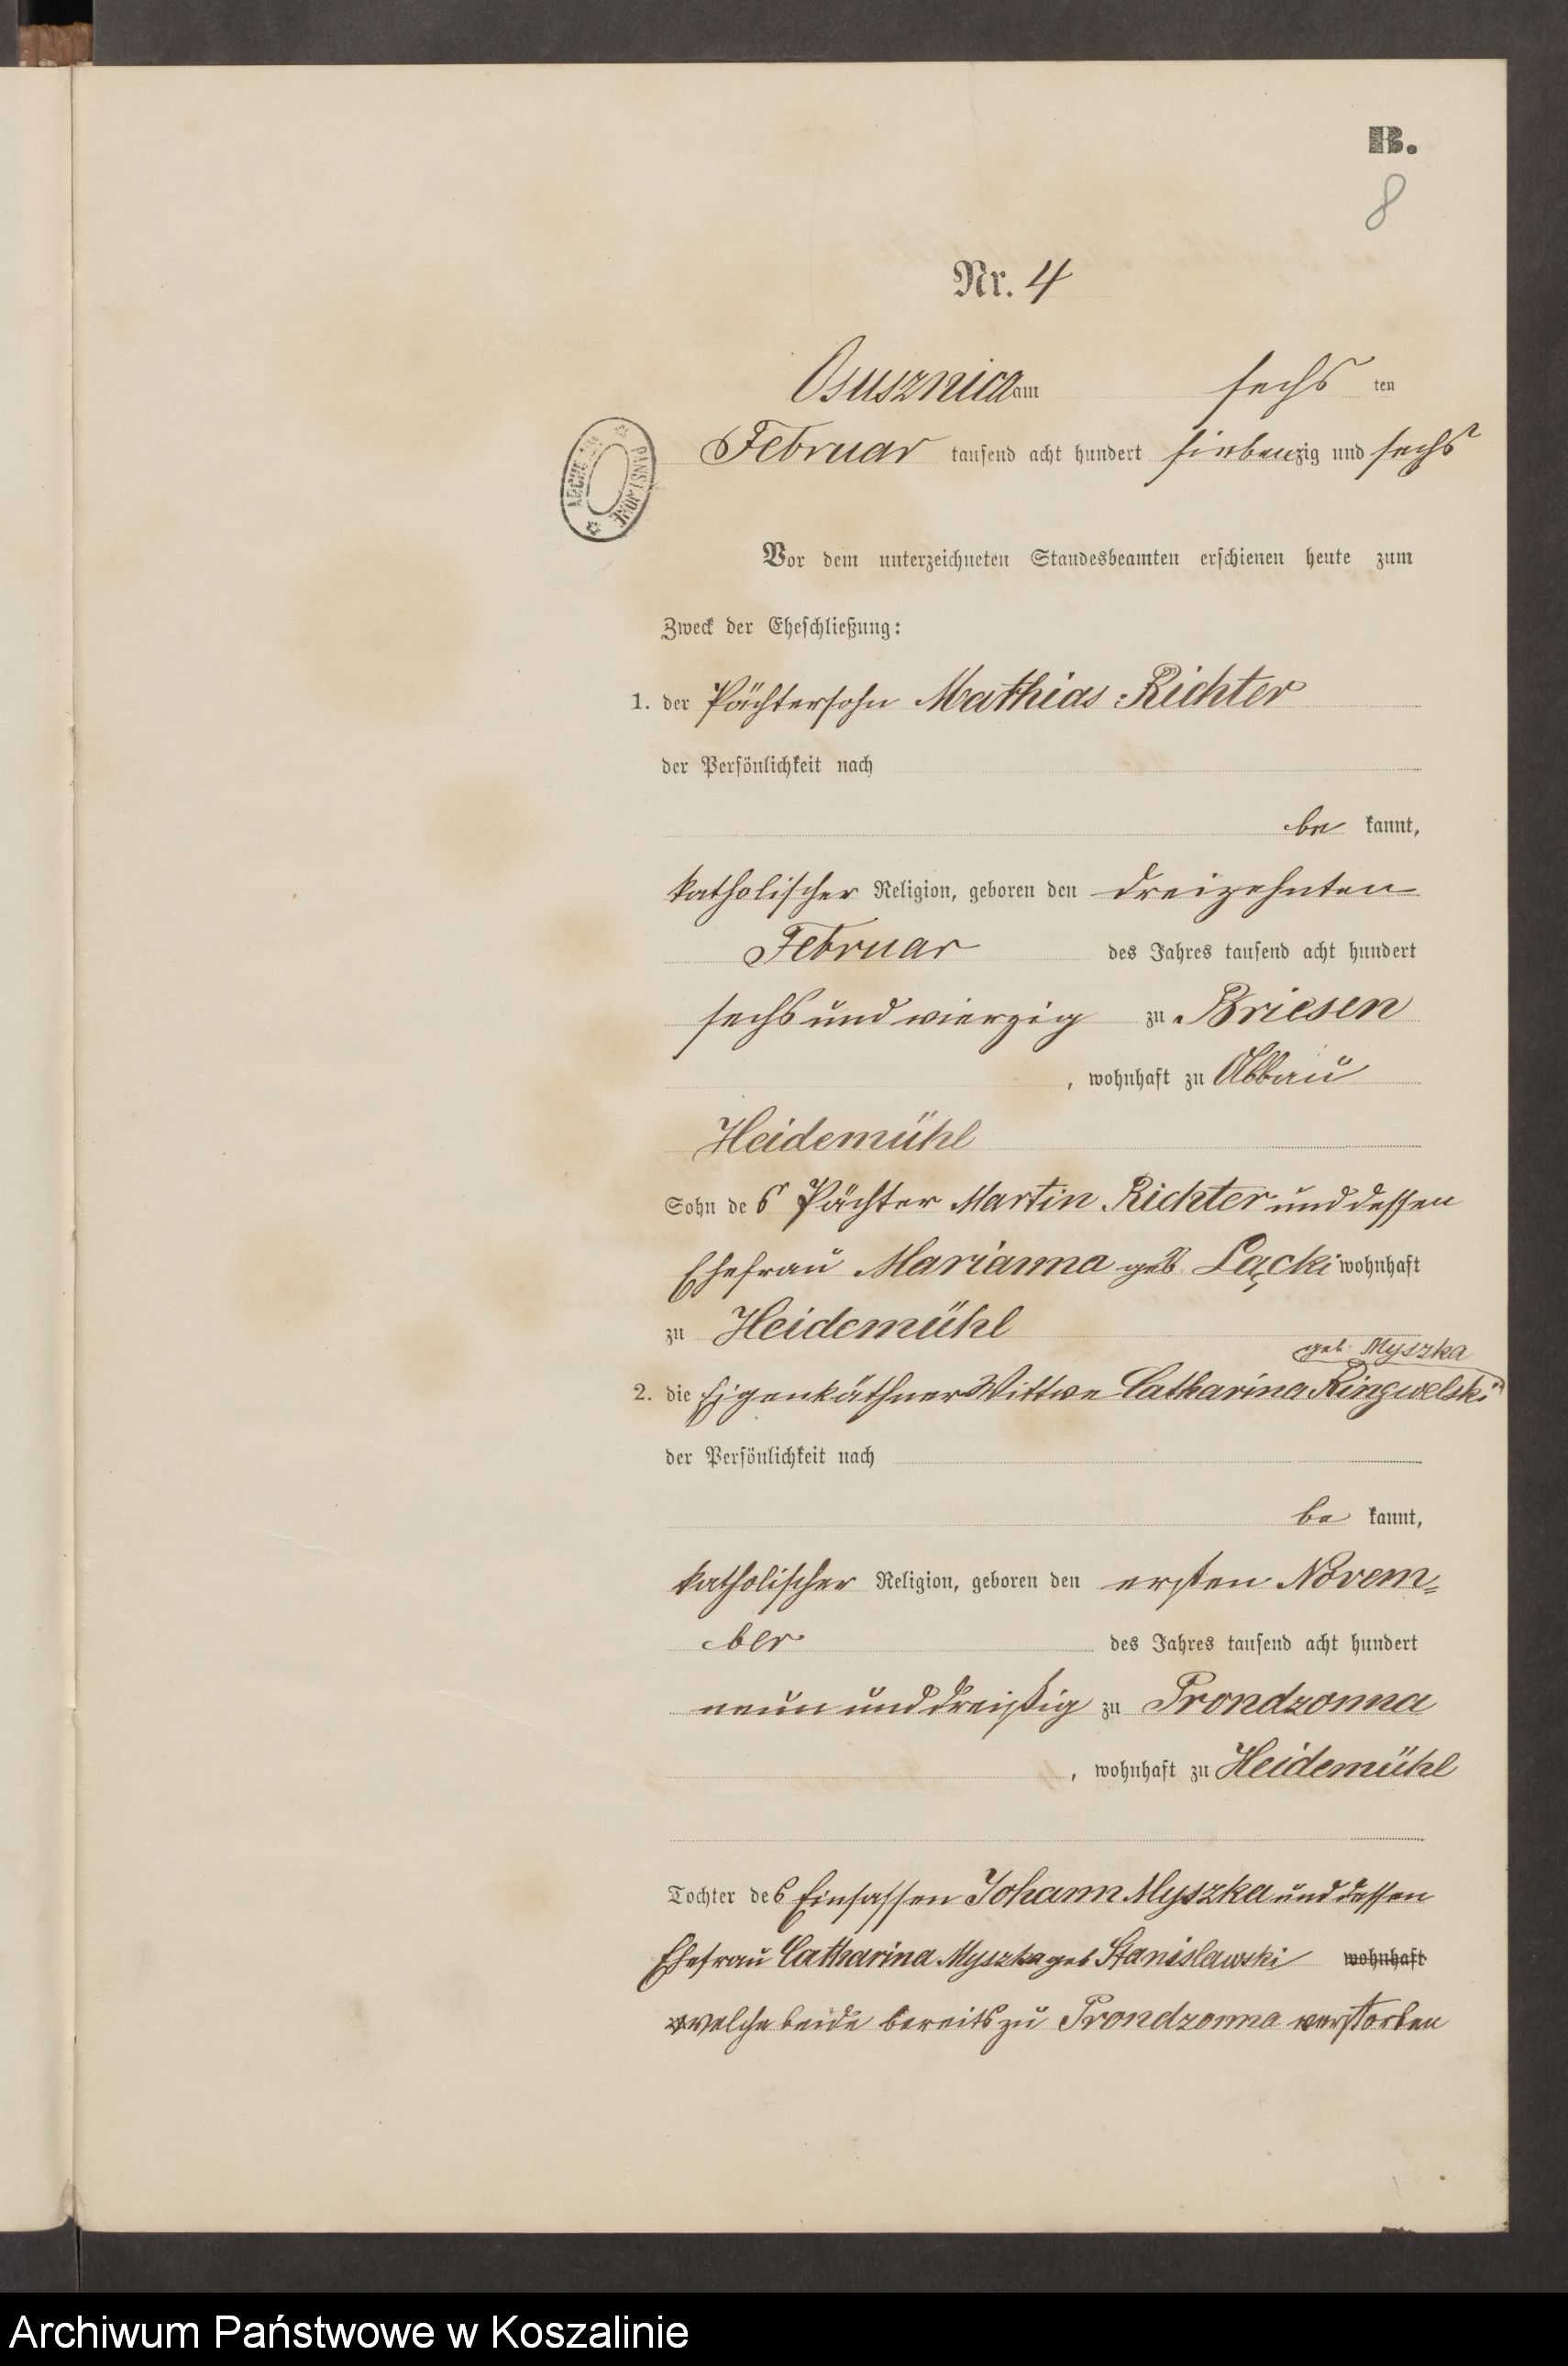 B.
8
Nr. 4
Osusznica am sechs ten
Februar tausend acht hundert siebenzig und sechs
ARCHIWUM PAŃSTWOWE
Vor dem unterzeichneten Standesbeamten erschienen heute zum
Zweck der Eheschließung:
1. der Pächtersohn Mathias Richter
der Persönlichkeit nach
be kannt,
katholischer Religion, geboren den dreizehnten
Februar des Jahres tausend acht hundert
sechs und vierzig zu Briesen
, wohnhaft zu Abbau
Heidemühl
Sohn des Pächter Martin Richter und dessen
Ehefrau Marianna geb Lącki wohnhaft
zu Heidemühl
geb. Myszka
2. die Eigenkäthner Wittwe Catharina Ringwelski
der Persönlichkeit nach
be kannt,
katholischer Religion, geboren den ersten Novem=
ber des Jahres tausend acht hundert
neun und dreißig zu Prondzonna
, wohnhaft zu Heidemühl
Tochter des Einsassen Johann Myszka und dessen
Ehefrau Catharina Myszka geb Stanislawski wohnhaft
zu welche beide bereits zu Prondzonna verstorben
Archiwum Państwowe w Koszalinie